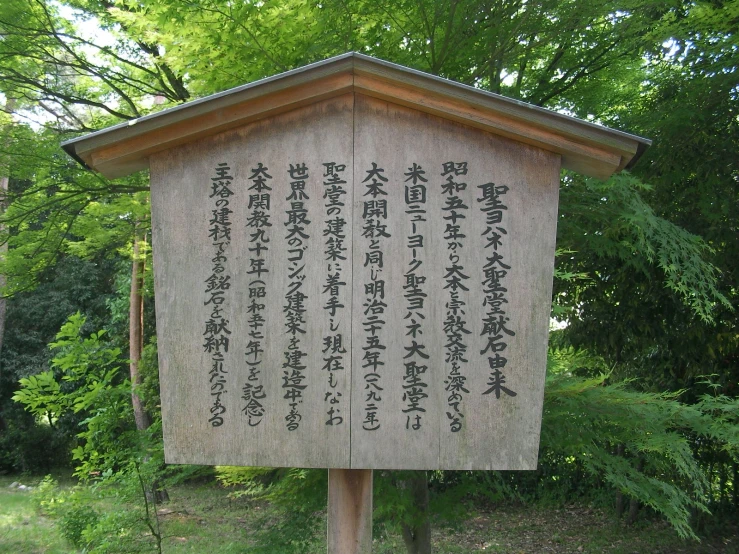 聖ヨハネ大聖堂献石由来
昭和五十年から大本と宗教交流を深めている
米国ニューヨーク聖ヨハネ大聖堂は
大本開教と同じ明治二十五年(一八九二年)
聖堂の建築に着手し現在もなお
世界最大のゴシック建築を建造中である
大本開教九十年(昭和五十七年)を記念し
主塔の建材である銘石を献納されたのである